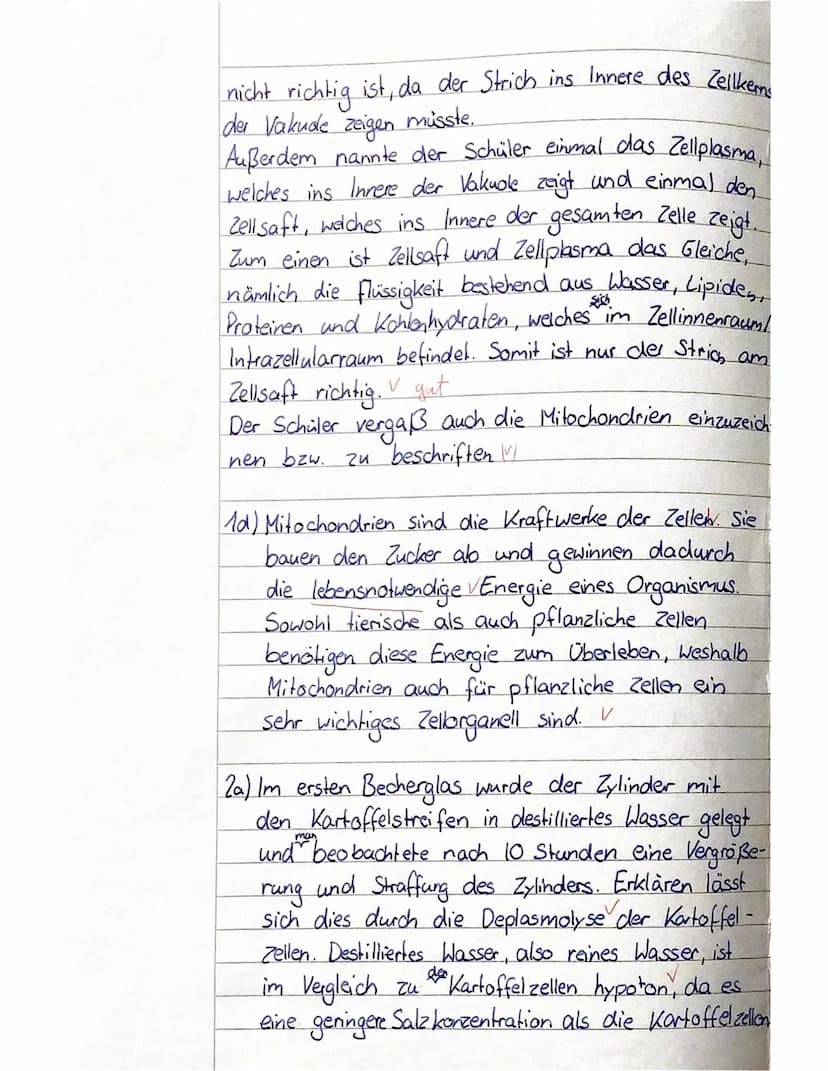 nicht richtig ist, da der Strich ins Innere des Zellkerns
der Vakuole zeigen müsste.
Außerdem nannte der Schüler einmal das Zellplasma,
welches ins Innere der Vakuole zeigt und einmal den
Zellsaft, welches ins Innere der gesamten Zelle zeigt.
Zum einen ist Zellsaft und Zellplasma das Gleiche,
nämlich die Flüssigkeit bestehend aus Wasser, Lipiden,
Proteinen und Kohlenhydraten, welches sich im Zellinnenraum/
Intrazellularraum befindet. Somit ist nur der Strich am
Zellsaft richtig. ✓ gut
Der Schüler vergaß auch die Mitochondrien einzuzeich
nen bzw. zu beschriften (✓)
1d) Mitochondrien sind die Kraftwerke der Zellen. Sie
bauen den Zucker ab und gewinnen dadurch
die lebensnotwendige ✓ Energie eines Organismus.
Sowohl tierische als auch pflanzliche Zellen
benötigen diese Energie zum Überleben, weshalb
Mitochondrien auch für pflanzliche Zellen ein
sehr wichtiges Zellorganell sind. ✓
2a) Im ersten Becherglas wurde der Zylinder mit
den Kartoffelstreifen in destilliertes Wasser gelegt
und man beobachtete nach 10 Stunden eine Vergröße-
rung und Straffung des Zylinders. Erklären lässt
sich dies durch die Deplasmolyse ✓ der Kartoffel-
zellen. Destilliertes Wasser, also reines Wasser, ist
im Vergleich zu den Kartoffelzellen hypoton ✓, da es
eine geringere Salzkonzentration als die Kartoffelzellen